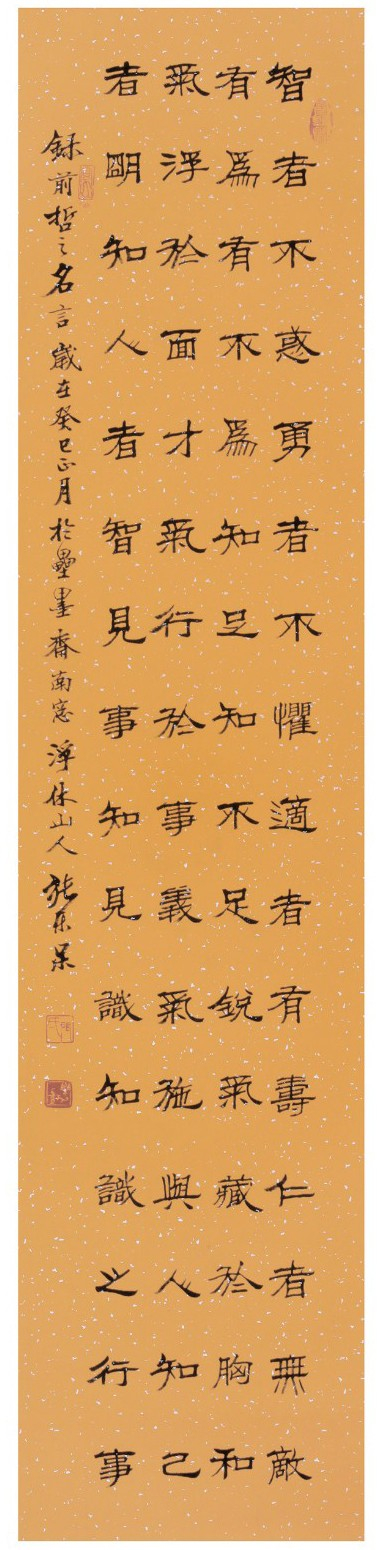 智者不惑勇者不懼適者有壽仁者無敵
有為有不為知足知不足銳氣藏於胸和
氣浮於面才氣行於事義氣施與人知己
者明知人者智見事知見識知識之行事
録前哲之名言歲在癸巳正月於壘墨齋南窓淨休山人